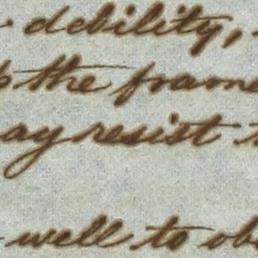 debility,
the frame
may resist
well to